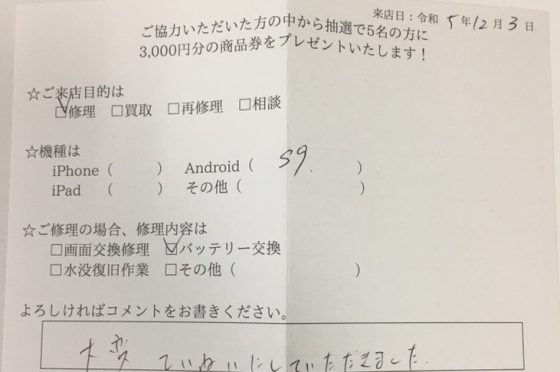 来店日：令和 5 年 12 月 3 日
ご協力いただいた方の中から抽選で5名の方に
3,000円分の商品券をプレゼントいたします！
☆ご来店目的は
☑修理 □買取 □再修理 □相談
☆機種は
iPhone（　　　） Android（ S9. ）
iPad （　　　） その他（　　　）
☆ご修理の場合、修理内容は
□画面交換修理 ☑バッテリー交換
□水没復旧作業 □その他（　　　）
よろしければコメントをお書きください。
大変 ていねいにしていただきました.